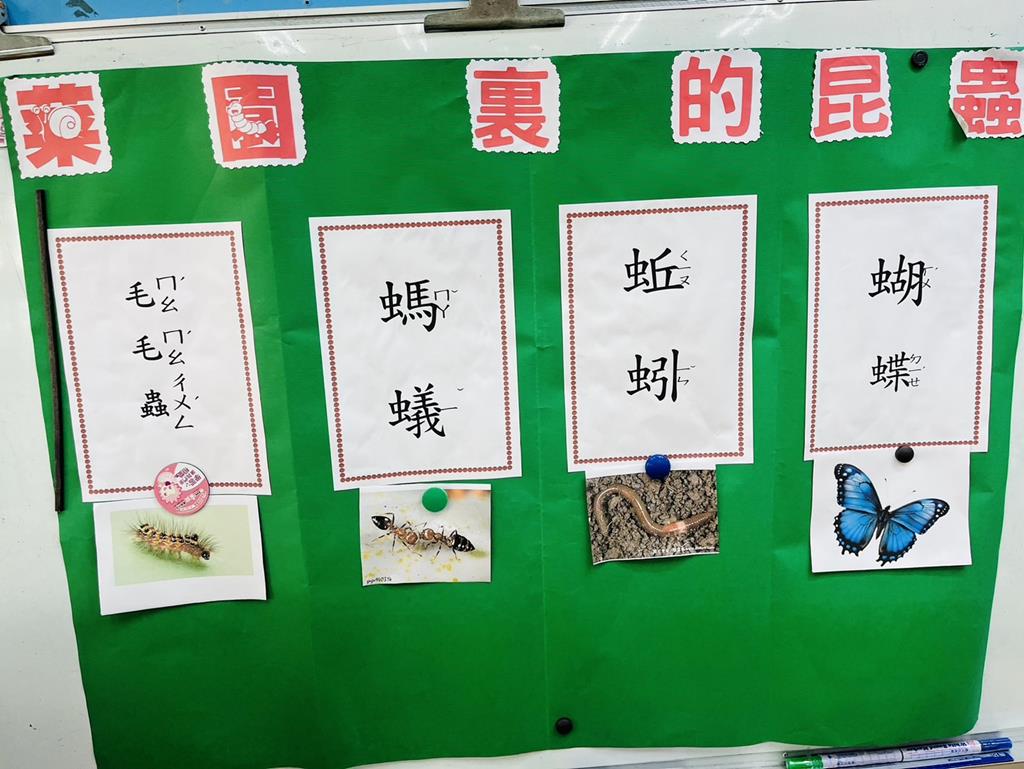 菜園裏的昆蟲
毛ㄇㄠˊ
毛ㄇㄠˊ
蟲ㄔㄨㄥˊ
螞ㄇㄚˇ
蟻ㄧˇ
蚯ㄑㄧㄡ
蚓ㄧㄣˇ
蝴ㄏㄨˊ
蝶ㄉㄧㄝˊ